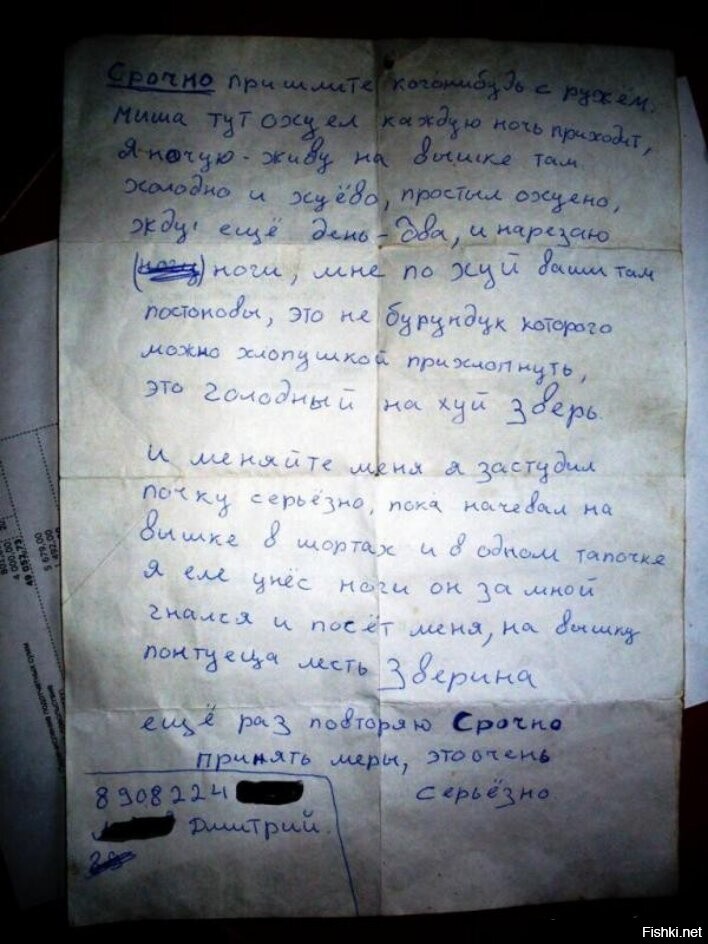 Срочно пришлите когонибудь с ружём.
Миша тут охуел каждую ночь приходит,
Я ночую - живу на вышке там
холодно и хуёво, простыл охуено,
жду ещё день - два, и нарезаю
(ногу) ноги, мне по хуй ваши там
постоновы, это не бурундук которого
можно хлопушкой прихлопнуть,
это голодный на хуй Зверь.
И меняйте меня я застудил
почку серьёзно, пока начевал на
вышке в шортах и в одном тапочке
я еле унёс ноги он за мной
гнался и посёт меня, на вышку
понтуеца лесть Зверина
ещё раз повторяю Срочно
принять меры, это очень
серьёзно
8908224
Дмитрий.
Fishki.net